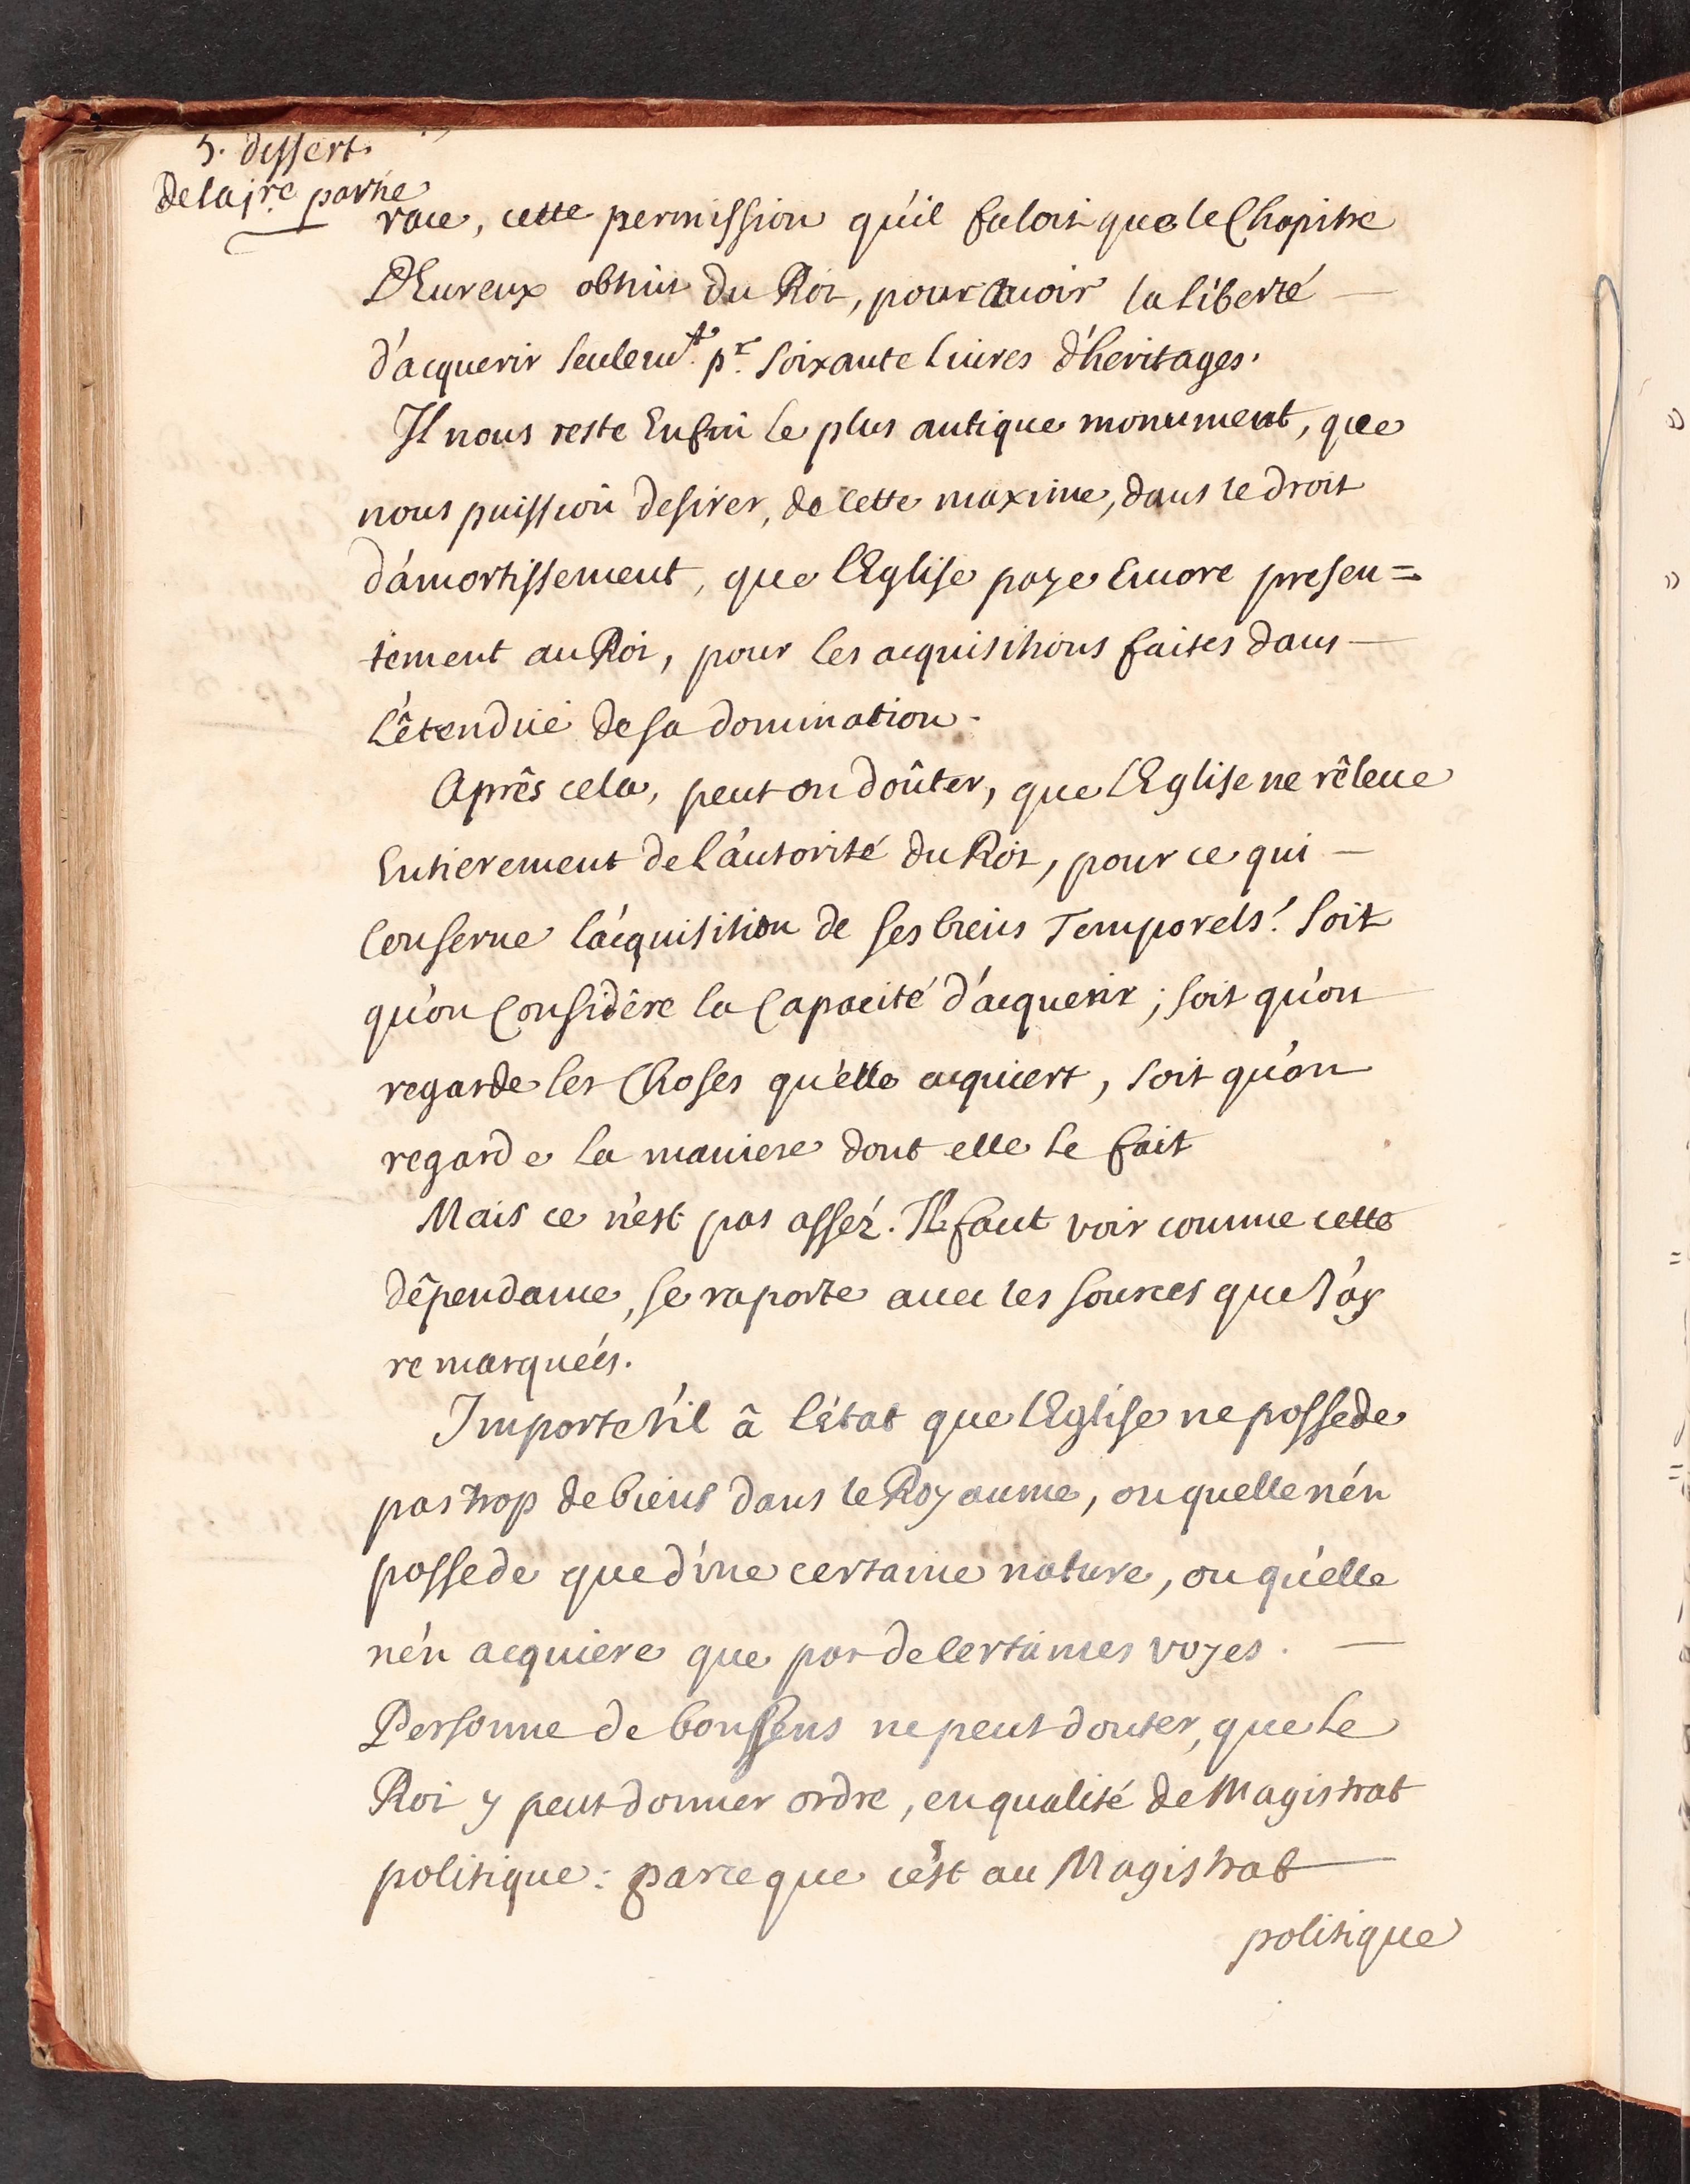 5. dissert.
de la jre partie
race, cette permission qu'il faloit que le Chapitre
D'Eureux obtint du Roi, pour auoir la liberté —
d'acquerir seulemt. pr. soixante liures d'heritages.
Il nous reste Enfin le plus antique monument, que
nous puission desirer, de cette maxime, dans le droit
d'amortissement, que l'Eglise paye Encore presen=
tement au Roi, pour les acquisitions faites dans —
l'êtenduë de sa domination.
Après cela, peut on doûter, que l'Eglise ne rêleue
Entierement de l'autorité du Roi, pour ce qui —
Conserne l'acquisition de ses biens Temporels? Soit
qu'on Considère la Capacité d'acquerir ; soit qu'on
regarde les Choses qu'elle acquiert, soit qu'on
regarde la maniere dont elle le fait
Mais ce n'est pas assez. Il faut voir comme cette
dêpendance, se raporte auec les sources que j'ay
remarquées.
Importe t'il â l'état que l'Eglise ne possede
pas trop de biens dans le Royaume, ou quelle n'en
possede que d'une certaine nature, ou qu'elle
n'en acquiere que par de Certaines voyes. —
Personne de bon sens ne peut douter, que le
Roi y peut donner ordre, en qualité de Magistrat
politique: parce que c'est au Magistrat —
politique